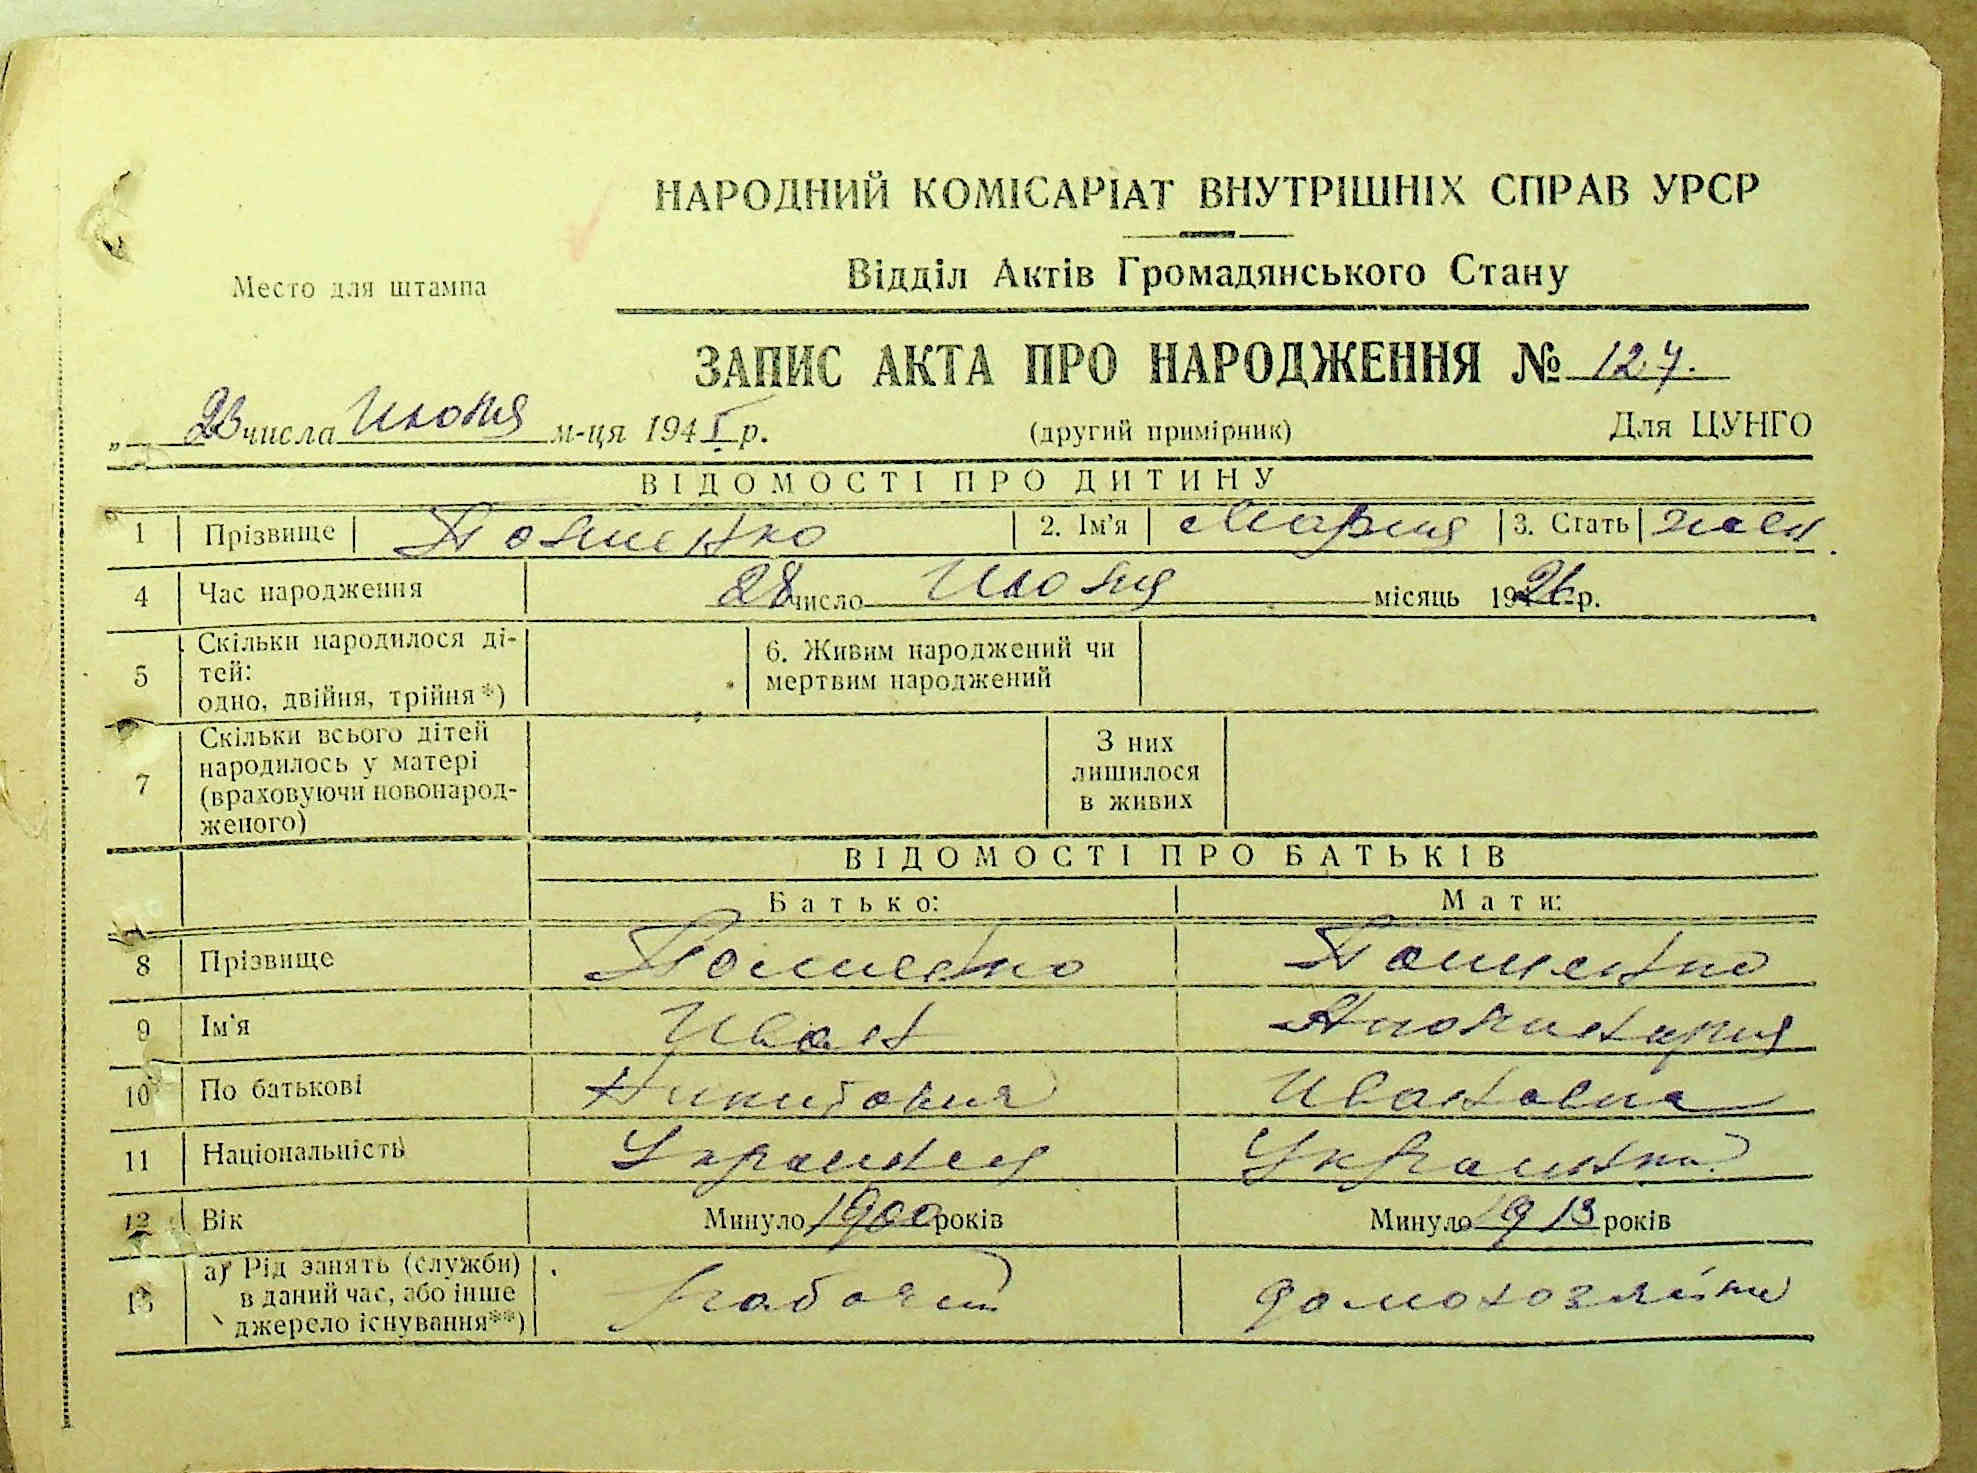 НАРОДНИЙ КОМІСАРІАТ ВНУТРІШНІХ СПРАВ УРСР
Відділ Актів Громадянського Стану
Место для штампа
ЗАПИС АКТА ПРО НАРОДЖЕННЯ № 127.
„ 23 числа Июня м-ця 194 I р.
(другий примірник)
Для ЦУНГО
ВІДОМОСТІ ПРО ДИТИНУ
1 Прізвище 2. Ім'я Мария 3. Стать жен.
4 Час народження 28 число Июня місяць 1926 р.
5 Скільки народилося ді-
тей:
одно, двійня, трійня*)
6. Живим народжений чи
мертвим народжений
7 Скільки всього дітей
народилось у матері
(враховуючи новонарод-
женого)
З них
лишилося
в живих
ВІДОМОСТІ ПРО БАТЬКІВ
Батько: Мати:
8 Прізвище
9 Ім'я Иван
10 По батькові Никитович Ивановна
11 Національність Украинец Украинка
12 Вік Минуло 1900 років Минуло 1913 років
13 а) Рід занять (служби)
в даний час, або інше
джерело існування**)
рабочий домохозяйка